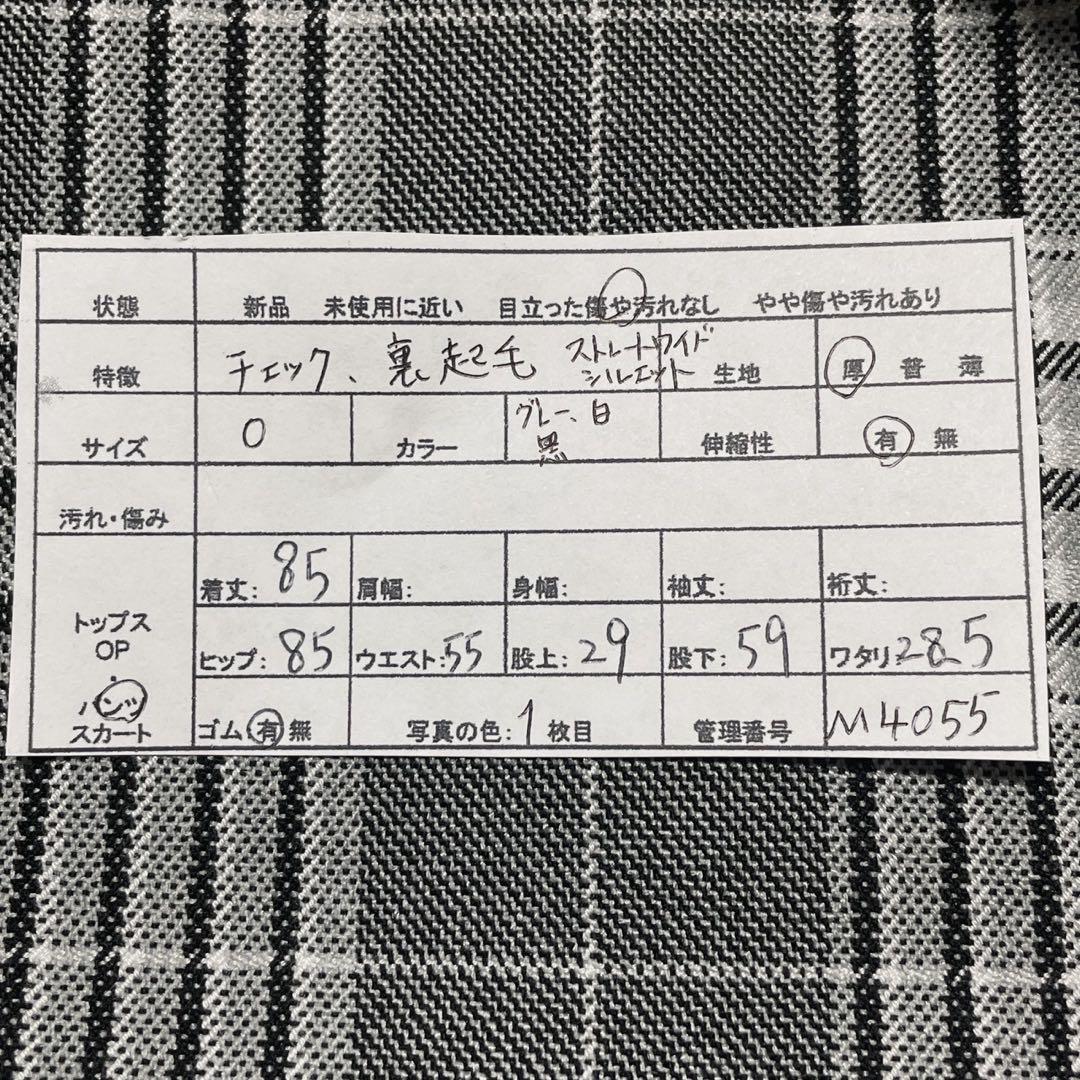 状態 新品 未使用に近い 目立った傷や汚れなし やや傷や汚れあり
特徴 チェック、裏起毛 ストレートワイド シルエット 生地 厚 普 薄
サイズ 0 カラー グレー、白 黒 伸縮性 有 無
汚れ・傷み
トップス OP ・ パンツ スカート
着丈: 85 肩幅: 身幅: 袖丈: 裄丈:
ヒップ: 85 ウエスト: 55 股上: 29 股下: 59 ワタリ 28.5
ゴム 有 無 写真の色: 1 枚目 管理番号 M4055